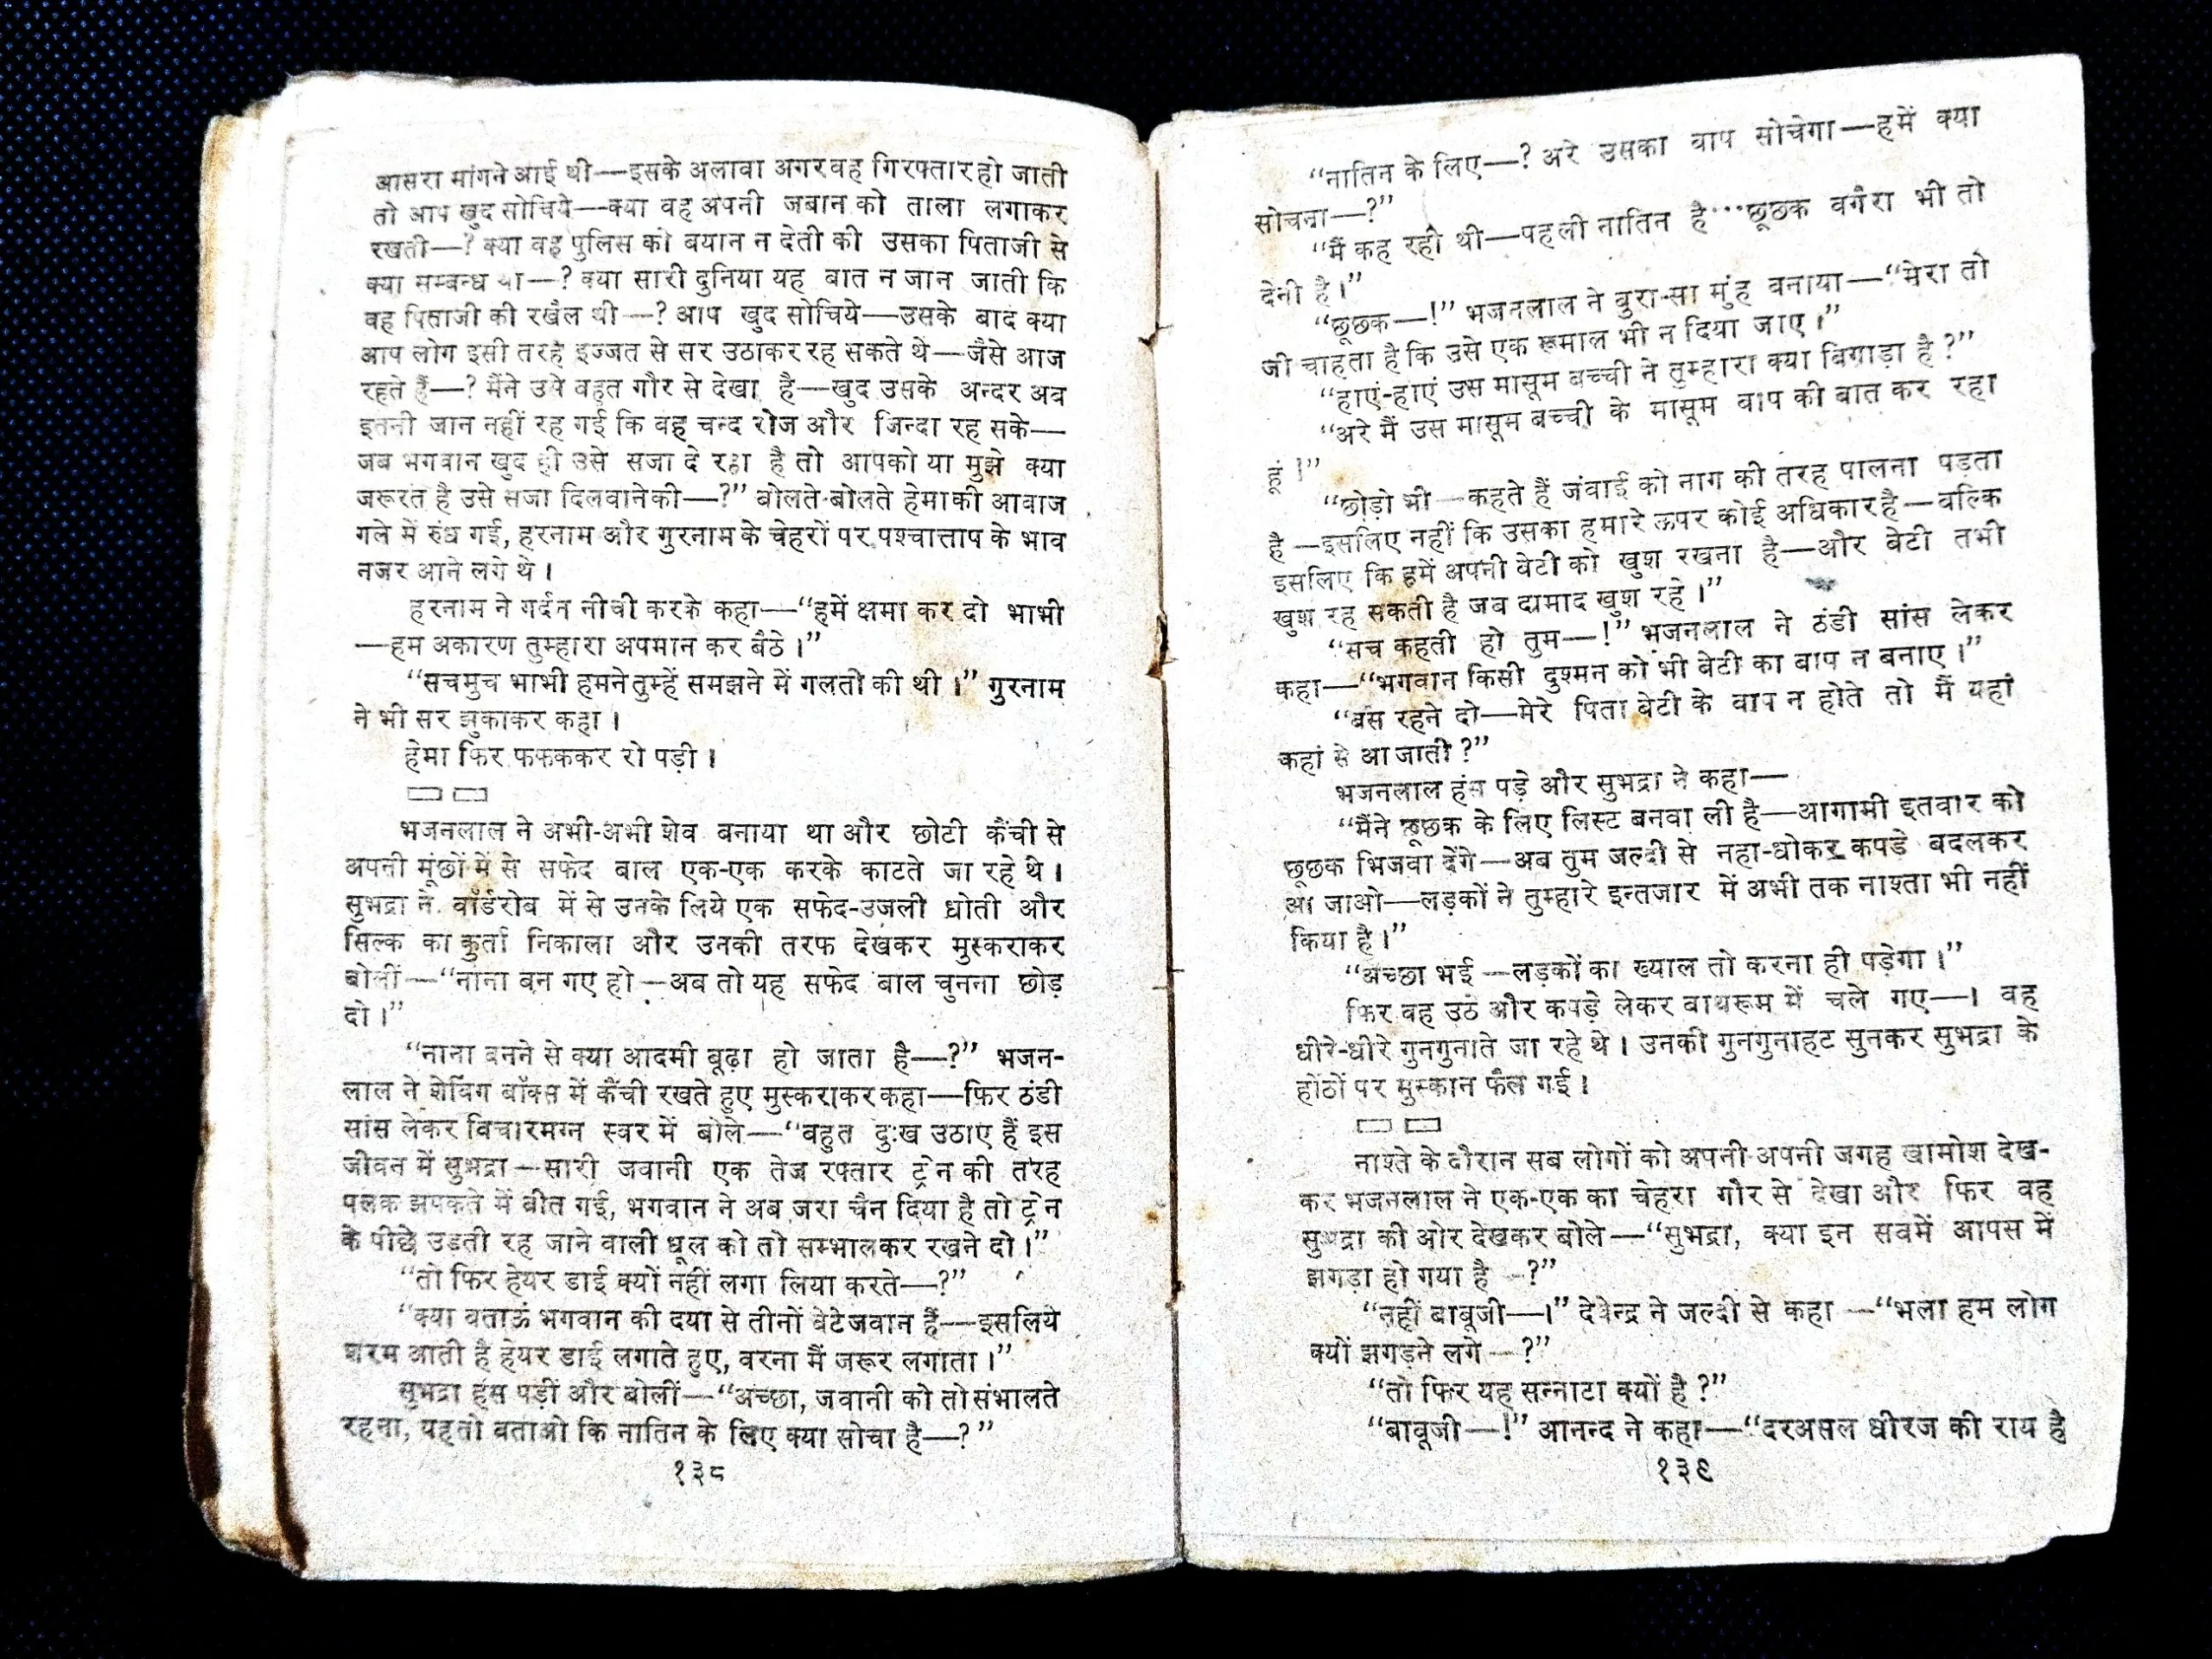 आसरा मांगने आई थी—इसके अलावा अगर वह गिरफ्तार हो जाती
तो आप खुद सोचिये—क्या वह अपनी जबान को ताला लगाकर
रखती—? क्या वह पुलिस को बयान न देती की उसका पिताजी से
क्या सम्बन्ध था—? क्या सारी दुनिया यह बात न जान जाती कि
वह पिताजी की रखैल थी—? आप खुद सोचिये—उसके बाद क्या
आप लोग इसी तरह इज्जत से सर उठाकर रह सकते थे—जैसे आज
रहते हैं—? मैंने उसे बहुत गौर से देखा है—खुद उसके अन्दर अब
इतनी जान नहीं रह गई कि वह चन्द रोज और जिन्दा रह सके—
जब भगवान खुद ही उसे सजा दे रहा है तो आपको या मुझे क्या
जरूरत है उसे सजा दिलवाने की—?” बोलते-बोलते हेमा की आवाज
गले में रुंध गई, हरनाम और गुरनाम के चेहरों पर पश्चात्ताप के भाव
नजर आने लगे थे।
हरनाम ने गर्दन नीची करके कहा—“हमें क्षमा कर दो भाभी
—हम अकारण तुम्हारा अपमान कर बैठे।”
“सचमुच भाभी हमने तुम्हें समझने में गलती की थी।” गुरनाम
ने भी सर झुकाकर कहा।
हेमा फिर फफककर रो पड़ी।
भजनलाल ने अभी-अभी शेव बनाया था और छोटी कैंची से
अपनी मूंछों में से सफेद बाल एक-एक करके काटते जा रहे थे।
सुभद्रा ने वॉर्डरोब में से उनके लिये एक सफेद-उजली धोती और
सिल्क का कुर्ता निकाला और उनकी तरफ देखकर मुस्कराकर
बोलीं—“नाना बन गए हो—अब तो यह सफेद बाल चुनना छोड़
दो।”
“नाना बनने से क्या आदमी बूढ़ा हो जाता है—?” भजन-
लाल ने शेविंग बॉक्स में कैंची रखते हुए मुस्कराकर कहा—फिर ठंडी
सांस लेकर विचारमग्न स्वर में बोले—“बहुत दुःख उठाए हैं इस
जीवन में सुभद्रा—सारी जवानी एक तेज रफ्तार ट्रेन की तरह
पलक झपकते में बीत गई, भगवान ने अब जरा चैन दिया है तो ट्रेन
के पीछे उड़ती रह जाने वाली धूल को तो सम्भालकर रखने दो।”
“तो फिर हेयर डाई क्यों नहीं लगा लिया करते—?”
“क्या बताऊं भगवान की दया से तीनों बेटे जवान हैं—इसलिये
शरम आती है हेयर डाई लगाते हुए, वरना मैं जरूर लगाता।”
सुभद्रा हंस पड़ीं और बोलीं—“अच्छा, जवानी को तो संभालते
रहना, यह तो बताओ कि नातिन के लिए क्या सोचा है—?”
१३८
“नातिन के लिए—? अरे उसका बाप सोचेगा—हमें क्या
सोचना—?”
“मैं कह रही थी—पहली नातिन है···छूछक वगैरा भी तो
देनी है।”
“छूछक—!” भजनलाल ने बुरा-सा मुंह बनाया—“मेरा तो
जी चाहता है कि उसे एक रूमाल भी न दिया जाए।”
“हाएं-हाएं उस मासूम बच्ची ने तुम्हारा क्या बिगाड़ा है?”
“अरे मैं उस मासूम बच्ची के मासूम बाप की बात कर रहा
हूं।”
“छोड़ो भी—कहते हैं जंवाई को नाग की तरह पालना पड़ता
है—इसलिए नहीं कि उसका हमारे ऊपर कोई अधिकार है—बल्कि
इसलिए कि हमें अपनी बेटी को खुश रखना है—और बेटी तभी
खुश रह सकती है जब दामाद खुश रहे।”
“सच कहती हो तुम—!” भजनलाल ने ठंडी सांस लेकर
कहा—“भगवान किसी दुश्मन को भी बेटी का बाप न बनाए।”
“बस रहने दो—मेरे पिता बेटी के बाप न होते तो मैं यहां
कहां से आ जाती?”
भजनलाल हंस पड़े और सुभद्रा ने कहा—
“मैंने छूछक के लिए लिस्ट बनवा ली है—आगामी इतवार को
छूछक भिजवा देंगे—अब तुम जल्दी से नहा-धोकर कपड़े बदलकर
आ जाओ—लड़कों ने तुम्हारे इन्तजार में अभी तक नाश्ता भी नहीं
किया है।”
“अच्छा भई—लड़कों का ख्याल तो करना ही पड़ेगा।”
फिर वह उठे और कपड़े लेकर बाथरूम में चले गए—। वह
धीरे-धीरे गुनगुनाते जा रहे थे। उनकी गुनगुनाहट सुनकर सुभद्रा के
होंठों पर मुस्कान फैल गई।
नाश्ते के दौरान सब लोगों को अपनी-अपनी जगह खामोश देख-
कर भजनलाल ने एक-एक का चेहरा गौर से देखा और फिर वह
सुभद्रा की ओर देखकर बोले—“सुभद्रा, क्या इन सबमें आपस में
झगड़ा हो गया है—?”
“नहीं बाबूजी—।” देवेन्द्र ने जल्दी से कहा—“भला हम लोग
क्यों झगड़ने लगे—?”
“तो फिर यह सन्नाटा क्यों है?”
“बाबूजी—!” आनन्द ने कहा—“दरअसल धीरज की राय है
१३९